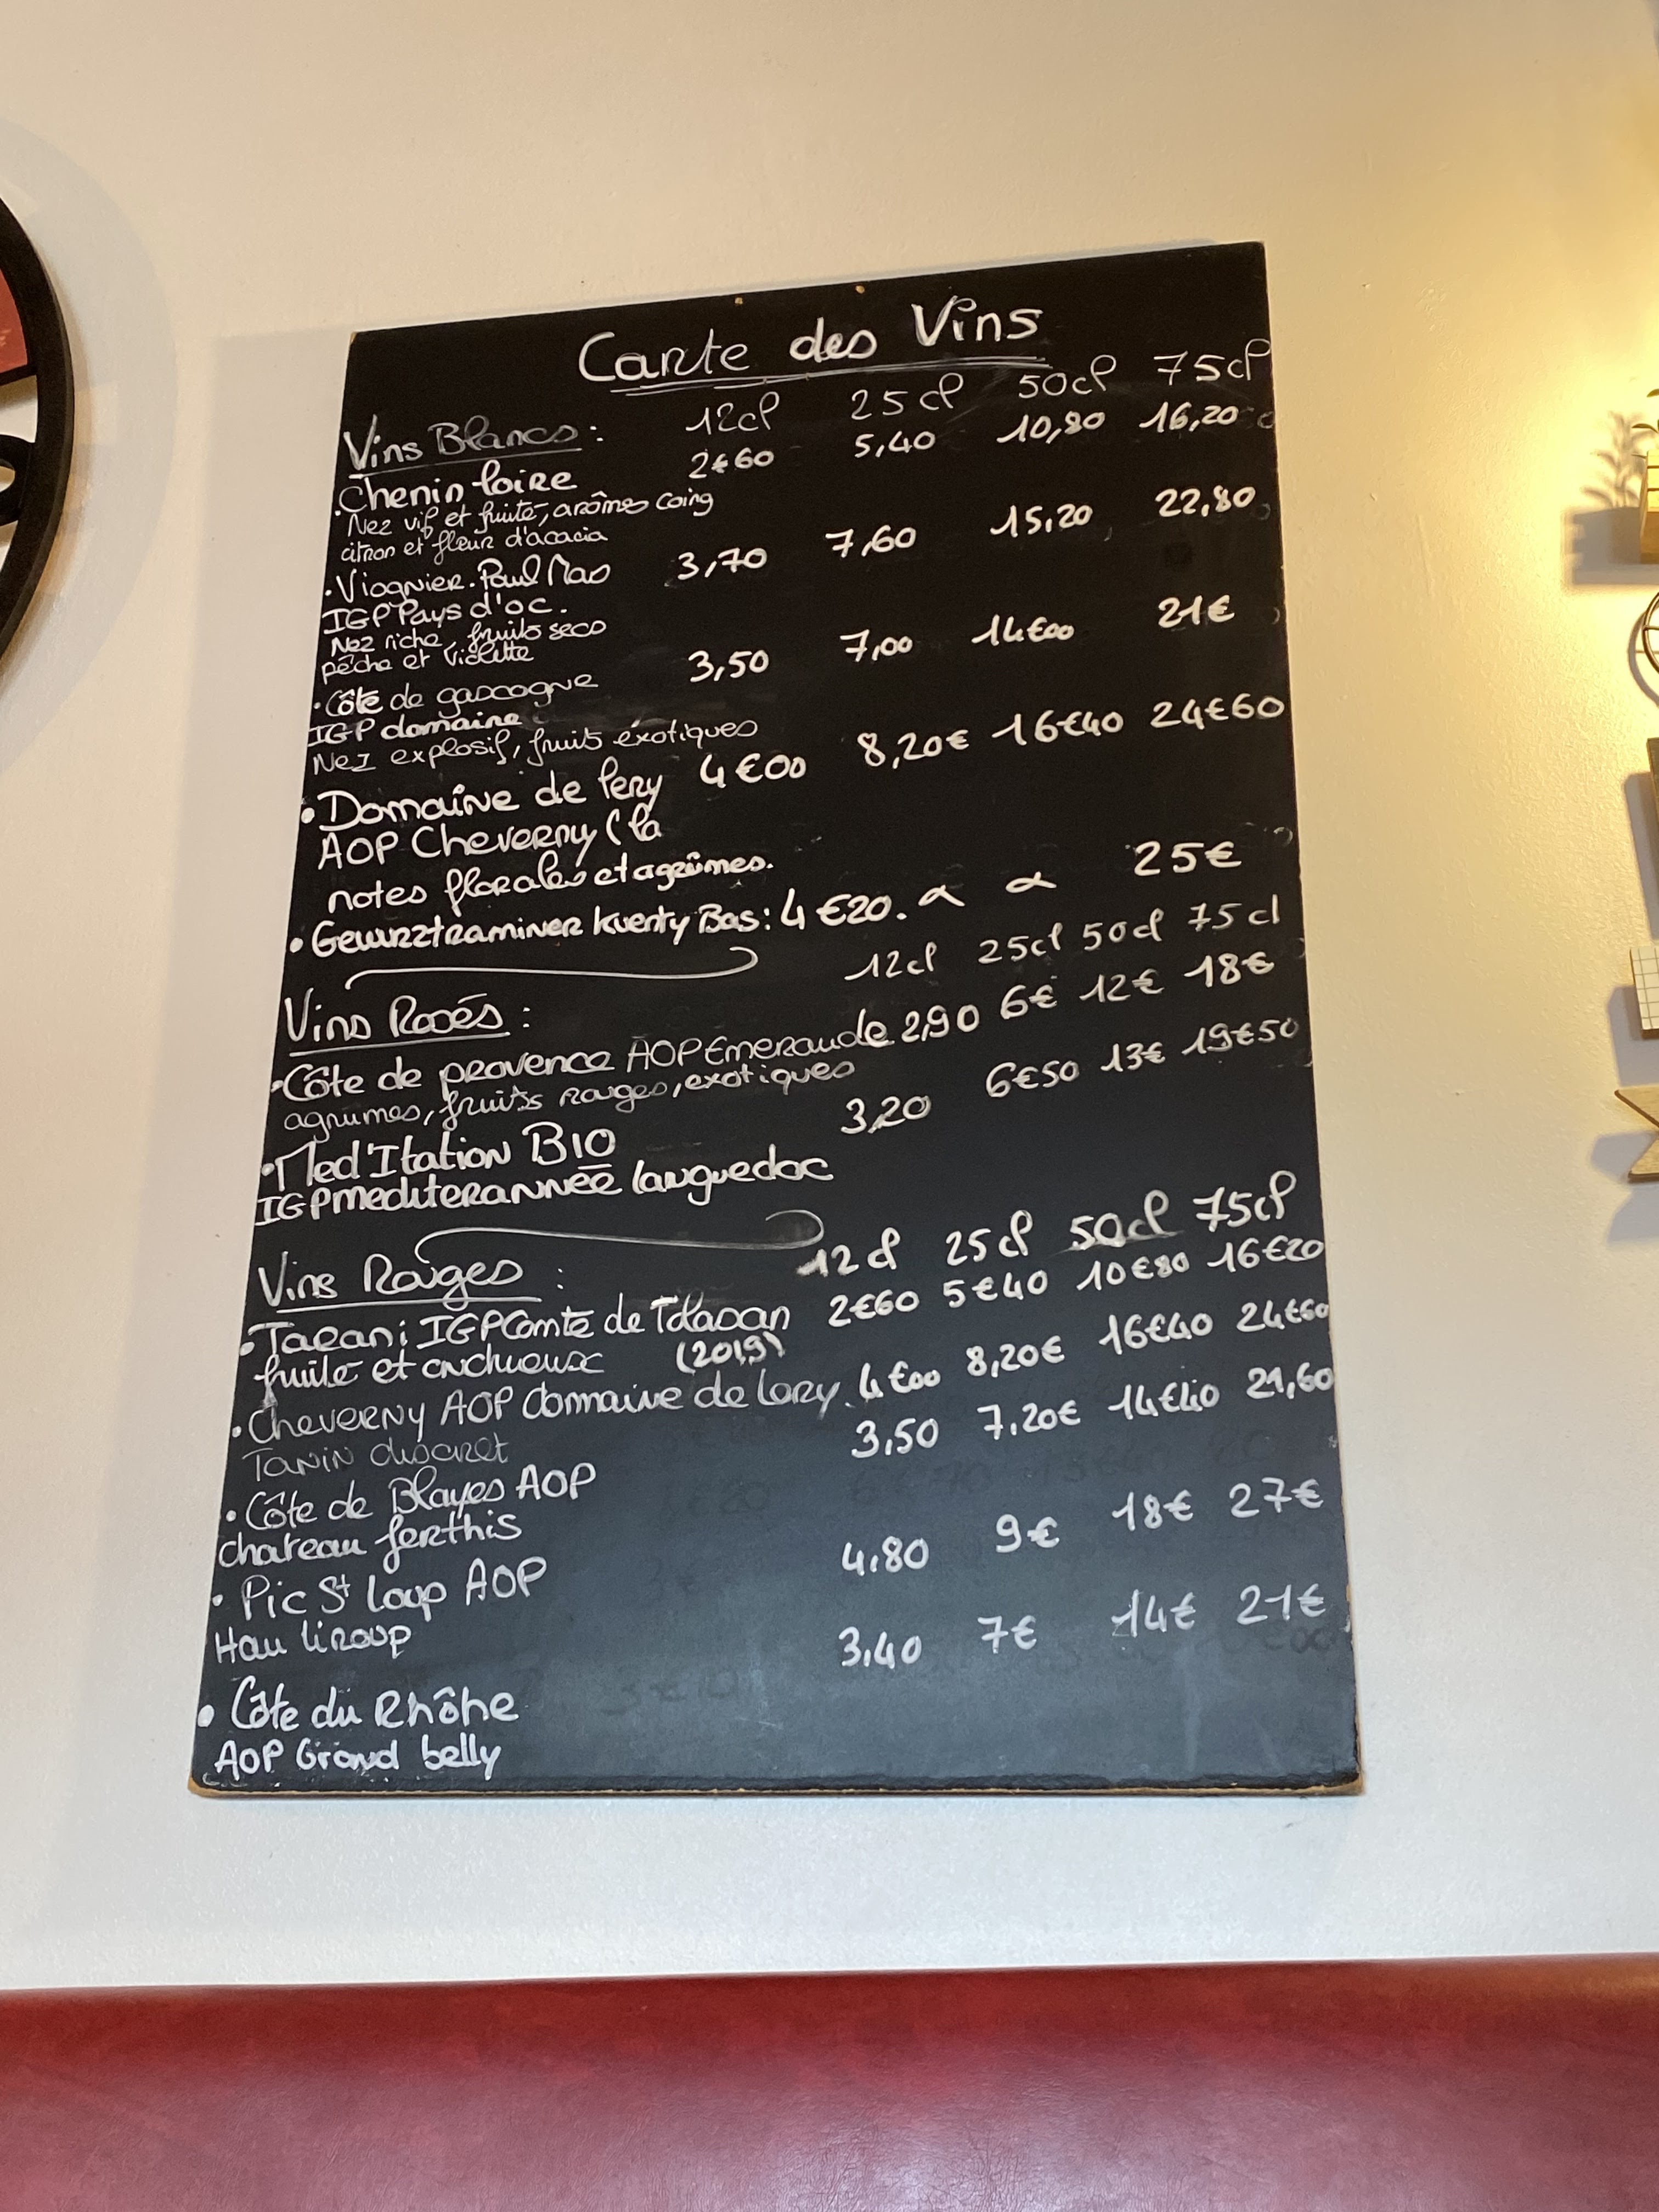 Carte des Vins
Vins Blancs : 12cl 25cl 50cl 75cl
.Chenin loire 2€60 5,40 10,80 16,20
Nez vif et fruité, arômes coing
citron et fleur d'acacia
.Viognier.Paul Mas 3,70 7,60 15,20 22,80
IGP Pays d'oc.
Nez riche, fruits secs
pêche et violette
.Côte de gascogne 3,50 7,00 14€00 21€
IGP domaine
Nez explosif, fruits exotiques
• Domaine de 4€00 8,20€ 16€40 24€60
AOP Cheverny (la
notes florales et agrûmes.
• Gewurztraminer Kuenty Bas: 4€20. 25€
Vins Rosés : 12cl 25cl 50cl 75cl
•Côte de provence AOP Emeraude 2,90 6€ 12€ 18€
agrumes, fruits rouges, exotiques
•Med'Itation BIO 3,20 6€50 13€ 19€50
IGP mediterannée languedoc
Vins Rouges : 12cl 25cl 50cl 75cl
• Tarani IGP Comté de 2€60 5€40 10€80 16€20
fruité et onctueux (2019)
• Cheverny AOP domaine de 4€00 8,20€ 16€40 24€60
Tanin discret
• Côte de Blayes AOP 3,50 7,20€ 14€40 21,60
chateau ferthis
• Pic St loup AOP 4,80 9€ 18€ 27€
Hau liroup
• Côte du Rhône 3,40 7€ 14€ 21€
AOP Grand belly